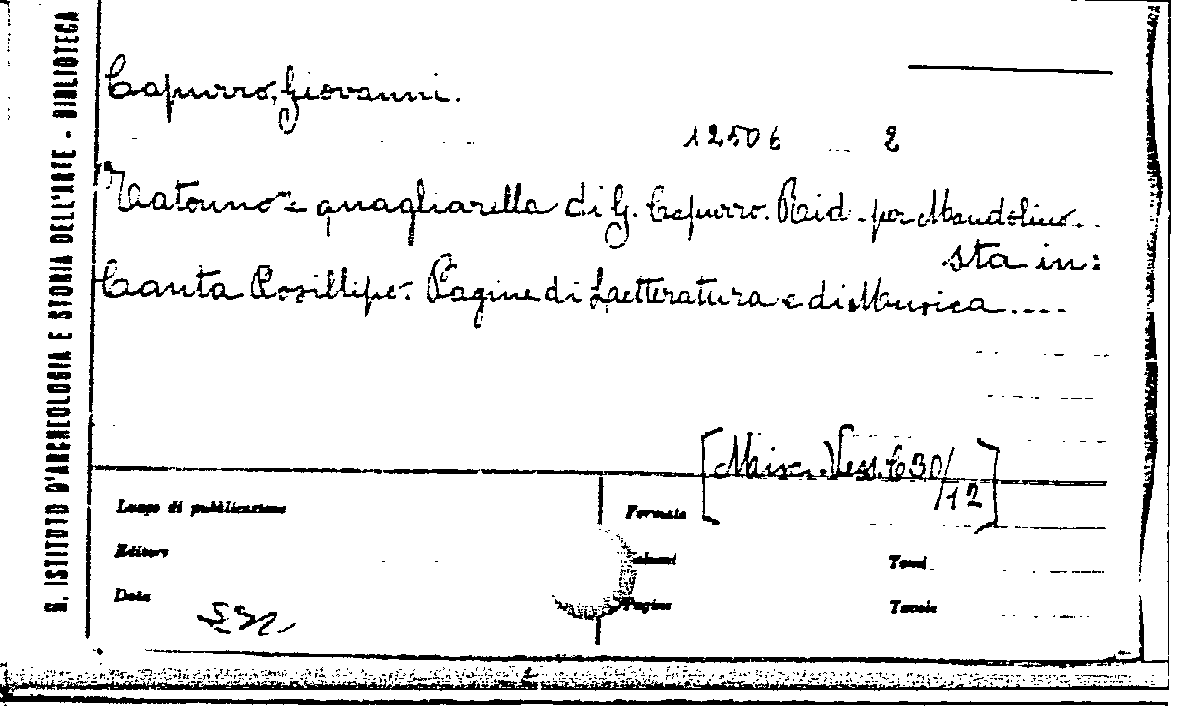 R. ISTITUTO D'ARCHEOLOGIA E STORIA DELL'ARTE - BIBLIOTECA
Capurro, Giovanni.
12506 2
Tatonno e quagliarella di G. Capurro. Rid. per Mandolino..
sta in:
Canta Posillipo. Pagine di Letteratura e di Musica....
[Misc. Vess. C 30/12]
Luogo di pubblicazione
Formato
Editore
Volumi
Tomi
Data
Pagine
Tavole